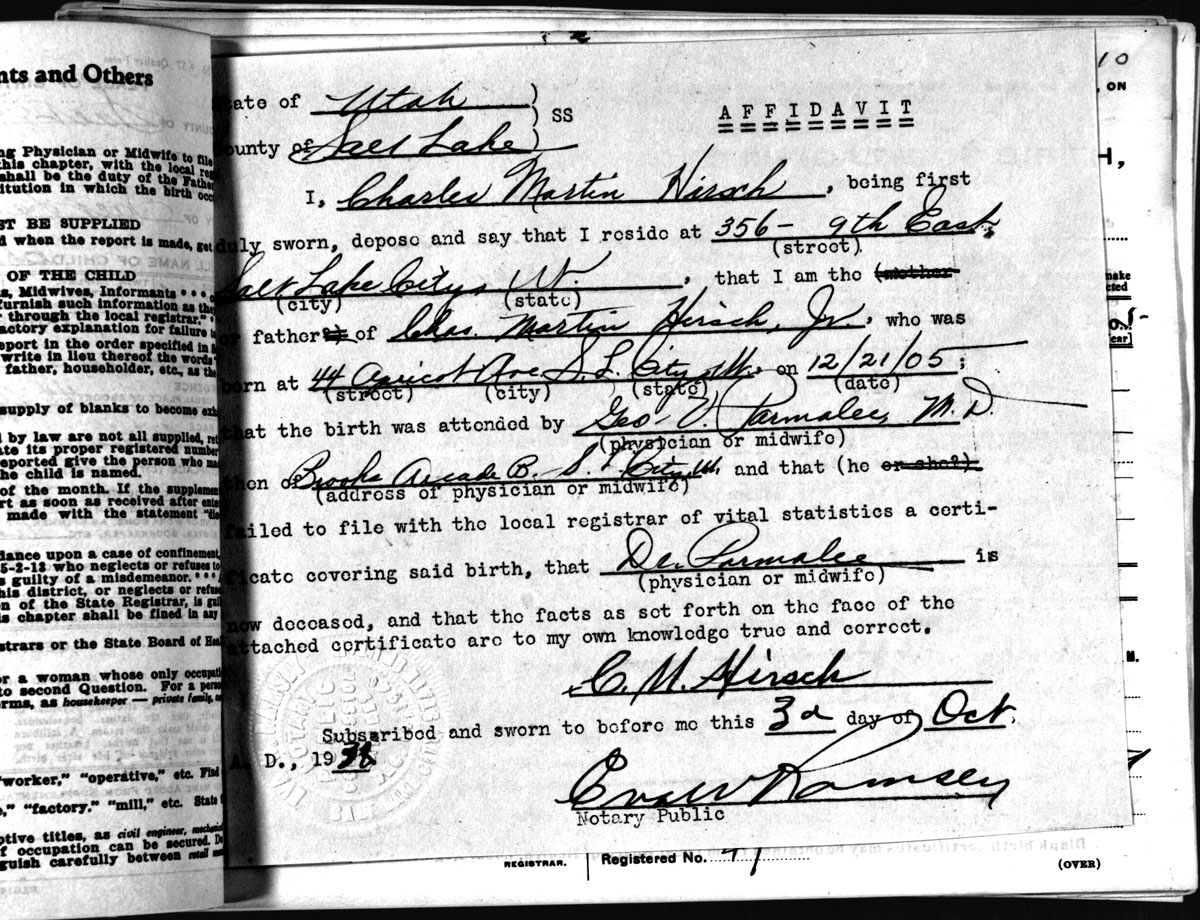 nts and Others
ng Physician or Midwife to file
this chapter, with the local reg
shall be the duty of the Father
stitution in which the birth occ
ST BE SUPPLIED
d when the report is made, get
OF THE CHILD
s, Midwives, Informants * * *
furnish such information as they
r through the local registrar."
factory explanation for failure to
eport in the order specified in
write in lieu thereof the words
father, householder, etc., as the
supply of blanks to become exh
d by law are not all supplied, ret
ate its proper registered number
eported give the person who ma
he child is named.
of the month. If the supplemen
rt as soon as received after ente
made with the statement
dance upon a case of confinement,
5-2-13 who neglects or refuses to
s guilty of a misdemeanor. * * *
his district, or neglects or refuse
on of the State Registrar, is guil
is chapter shall be fined in any
strars or the State Board of Heal
or a woman whose only occupati
to second Question. For a perso
rms, as housekeeper — private family,
"worker," "operative," etc. Find
," "factory." "mill," etc. State
ptive titles, as civil engineer, mechanic
f occupation can be secured. D
guish carefully between retail
State of Utah ) SS
AFFIDAVIT
County of Salt Lake )
I, Charles Martin Hirsch, being first
duly sworn, depose and say that I reside at 356 - 9th East,
(street)
Salt Lake City, Ut., that I am the (mother
(city) (state)
or father?) of Chas. Martin Hirsch, Jr., who was
born at 44 Apricot Ave S. L. City Ut. on 12/21/05;
(street) (city) (state) (date)
that the birth was attended by Geo. V. Parmalee, M.D.
(physician or midwife)
then of Brooks Arcade B. S. L. City, Ut. and that (he or she?)
(address of physician or midwife)
failed to file with the local registrar of vital statistics a certi-
ficate covering said birth, that Dr. Parmalee is
(physician or midwife)
now deceased, and that the facts as set forth on the face of the
attached certificate are to my own knowledge true and correct.
C. M. Hirsch
Subscribed and sworn to before me this 3d day of Oct.
A. D., 1938
Eva W Ramsey
Notary Public
REGISTRAR.
Registered No.
(OVER)
10
, ON
H,
make
cted
ear
M.